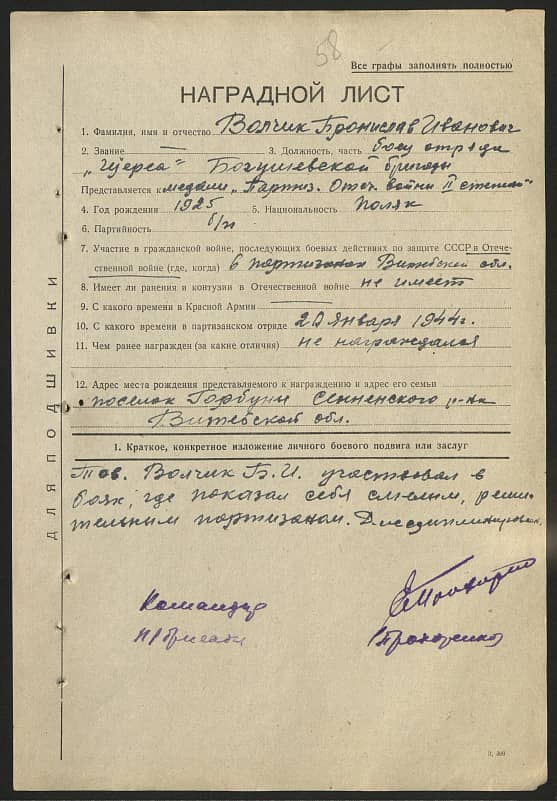 58
Все графы заполнять полностью
НАГРАДНОЙ ЛИСТ
1. Фамилия, имя и отчество Волчик Бронислав Иванович
2. Звание — 3. Должность, часть боец отряда
„Щорса“ Богушевской бригады
Представляется к медали „Партиз. Отеч. войны II степени“
4. Год рождения 1925 5. Национальность поляк
6. Партийность б/п
7. Участие в гражданской войне, последующих боевых действиях по защите СССР в Отече-
ственной войне (где, когда) в партизанах Витебской обл.
8. Имеет ли ранения и контузии в Отечественной войне не имеет
9. С какого времени в Красной Армии —
10. С какого времени в партизанском отряде 20 января 1944 г.
11. Чем ранее награжден (за какие отличия) не награждался
12. Адрес места рождения представляемого к награждению и адрес его семьи
поселок Горбуны Сенненского р-на
Витебской обл.
1. Краткое, конкретное изложение личного боевого подвига или заслуг
Тов. Волчик Б. И. участвовал в
боях, где показал себя смелым, реши
тельным партизаном. Дисциплинирован.
Командир
п/бригады
ДЛЯ ПОДШИВКИ